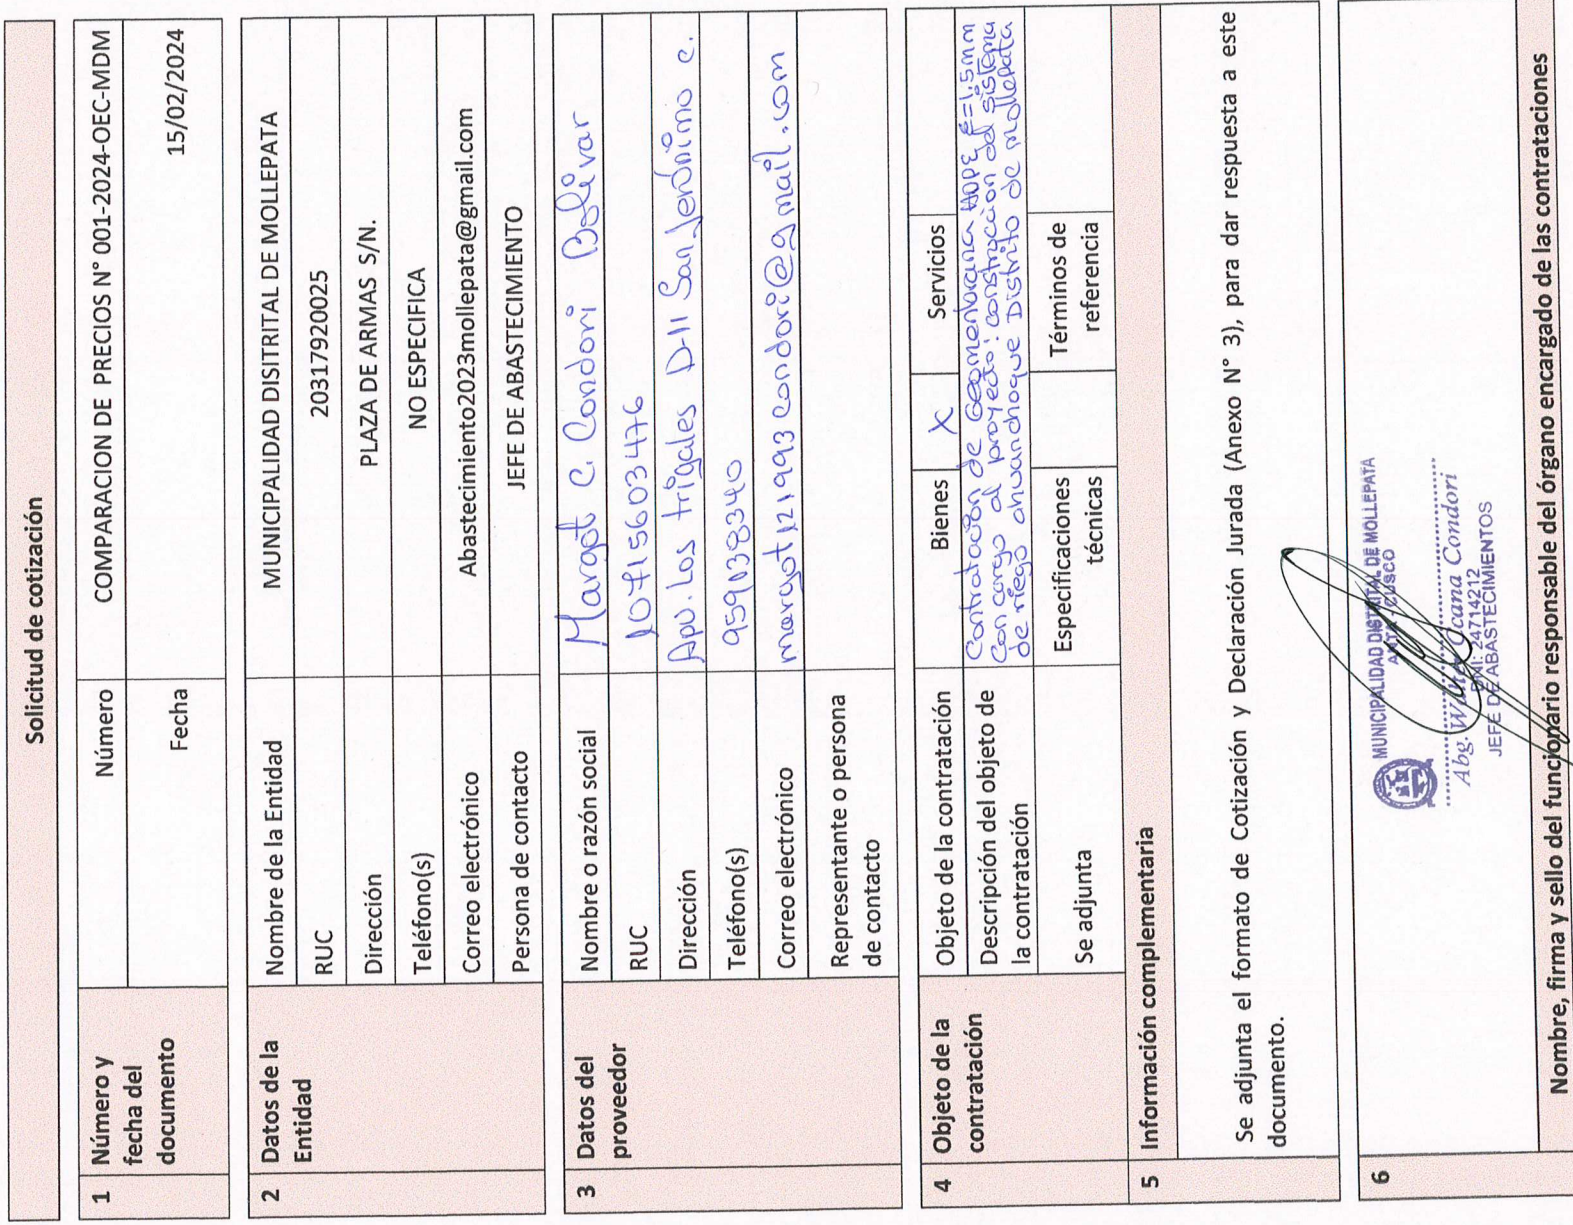 Solicitud de cotización
1 Número y fecha del documento
Número COMPARACION DE PRECIOS N° 001-2024-OEC-MDM
Fecha 15/02/2024
2 Datos de la Entidad
Nombre de la Entidad MUNICIPALIDAD DISITRITAL DE MOLLEPATA
RUC 20317920025
Dirección PLAZA DE ARMAS S/N.
Teléfono(s) NO ESPECIFICA
Correo electrónico Abastecimiento2023mollepata@gmail.com
Persona de contacto JEFE DE ABASTECIMIENTO
3 Datos del proveedor
Nombre o razón social Margot C. Condori Bolívar
RUC 10715603476
Dirección Apv. Los trigales D-11 San Jerónimo C.
Teléfono(s) 959038340
Correo electrónico margot121993condori@gmail.com
Representante o persona de contacto
4 Objeto de la contratación
Objeto de la contratación Bienes X Servicios
Descripción del objeto de la contratación
Contratación de Geomembrana HDPE E=1.5mm
Con cargo al proyecto: construcción del sistema
de riego ahuanchaque Distrito de mollepata
Se adjunta Especificaciones técnicas Términos de referencia
5 Información complementaria
Se adjunta el formato de Cotización y Declaración Jurada (Anexo N° 3), para dar respuesta a este
documento.
6
MUNICIPALIDAD DISTRITAL DE MOLLEPATA
ANTA CUSCO
Abg. Ccana Condori
DNI: 24714212
JEFE DE ABASTECIMIENTOS
Nombre, firma y sello del funcionario responsable del órgano encargado de las contrataciones